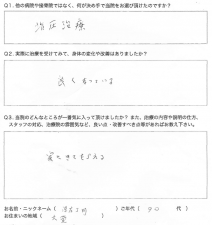 Q1. 他の病院や接骨院ではなく、何が決め手で当院をお選び頂けたのですか？
治療
Q2. 実際に治療を受けてみて、身体の変化や改善はありましたか？
良くなっている
Q3. 当院のどんなところが一番気に入って頂けましたか？また、治療の内容や説明の仕方、
スタッフの対応、治療院の雰囲気など、良い点・改善すべき点等があればお教え下さい。
お名前・ニックネーム（ ）ご年代（ 90 代 ）
お住まいの地域（ ）